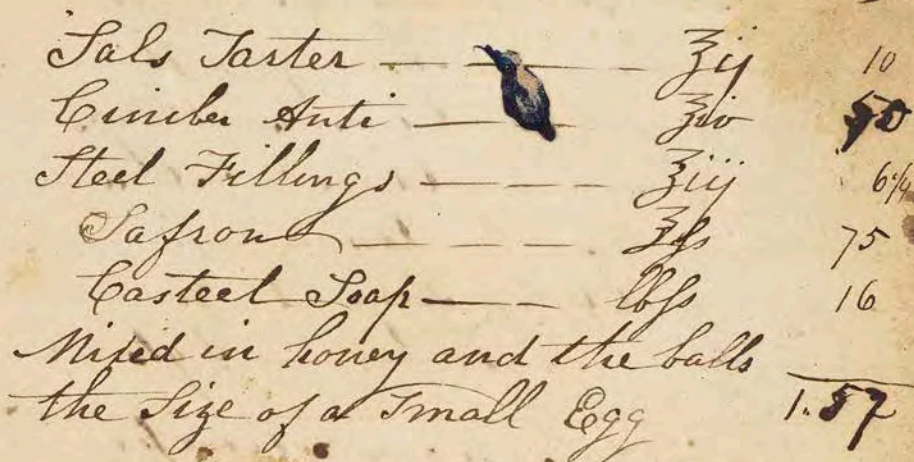 Sals Tarter — — — ℥ij 10
Ciniber Anti — — ℥iv 50
Steel Fillings — — — ℥iij 6¼
Safron — — — ℥ſs 75
Casteel Soap — — lbſs 16
Mixed in honey and the balls
the Size of a Small Egg 1.57